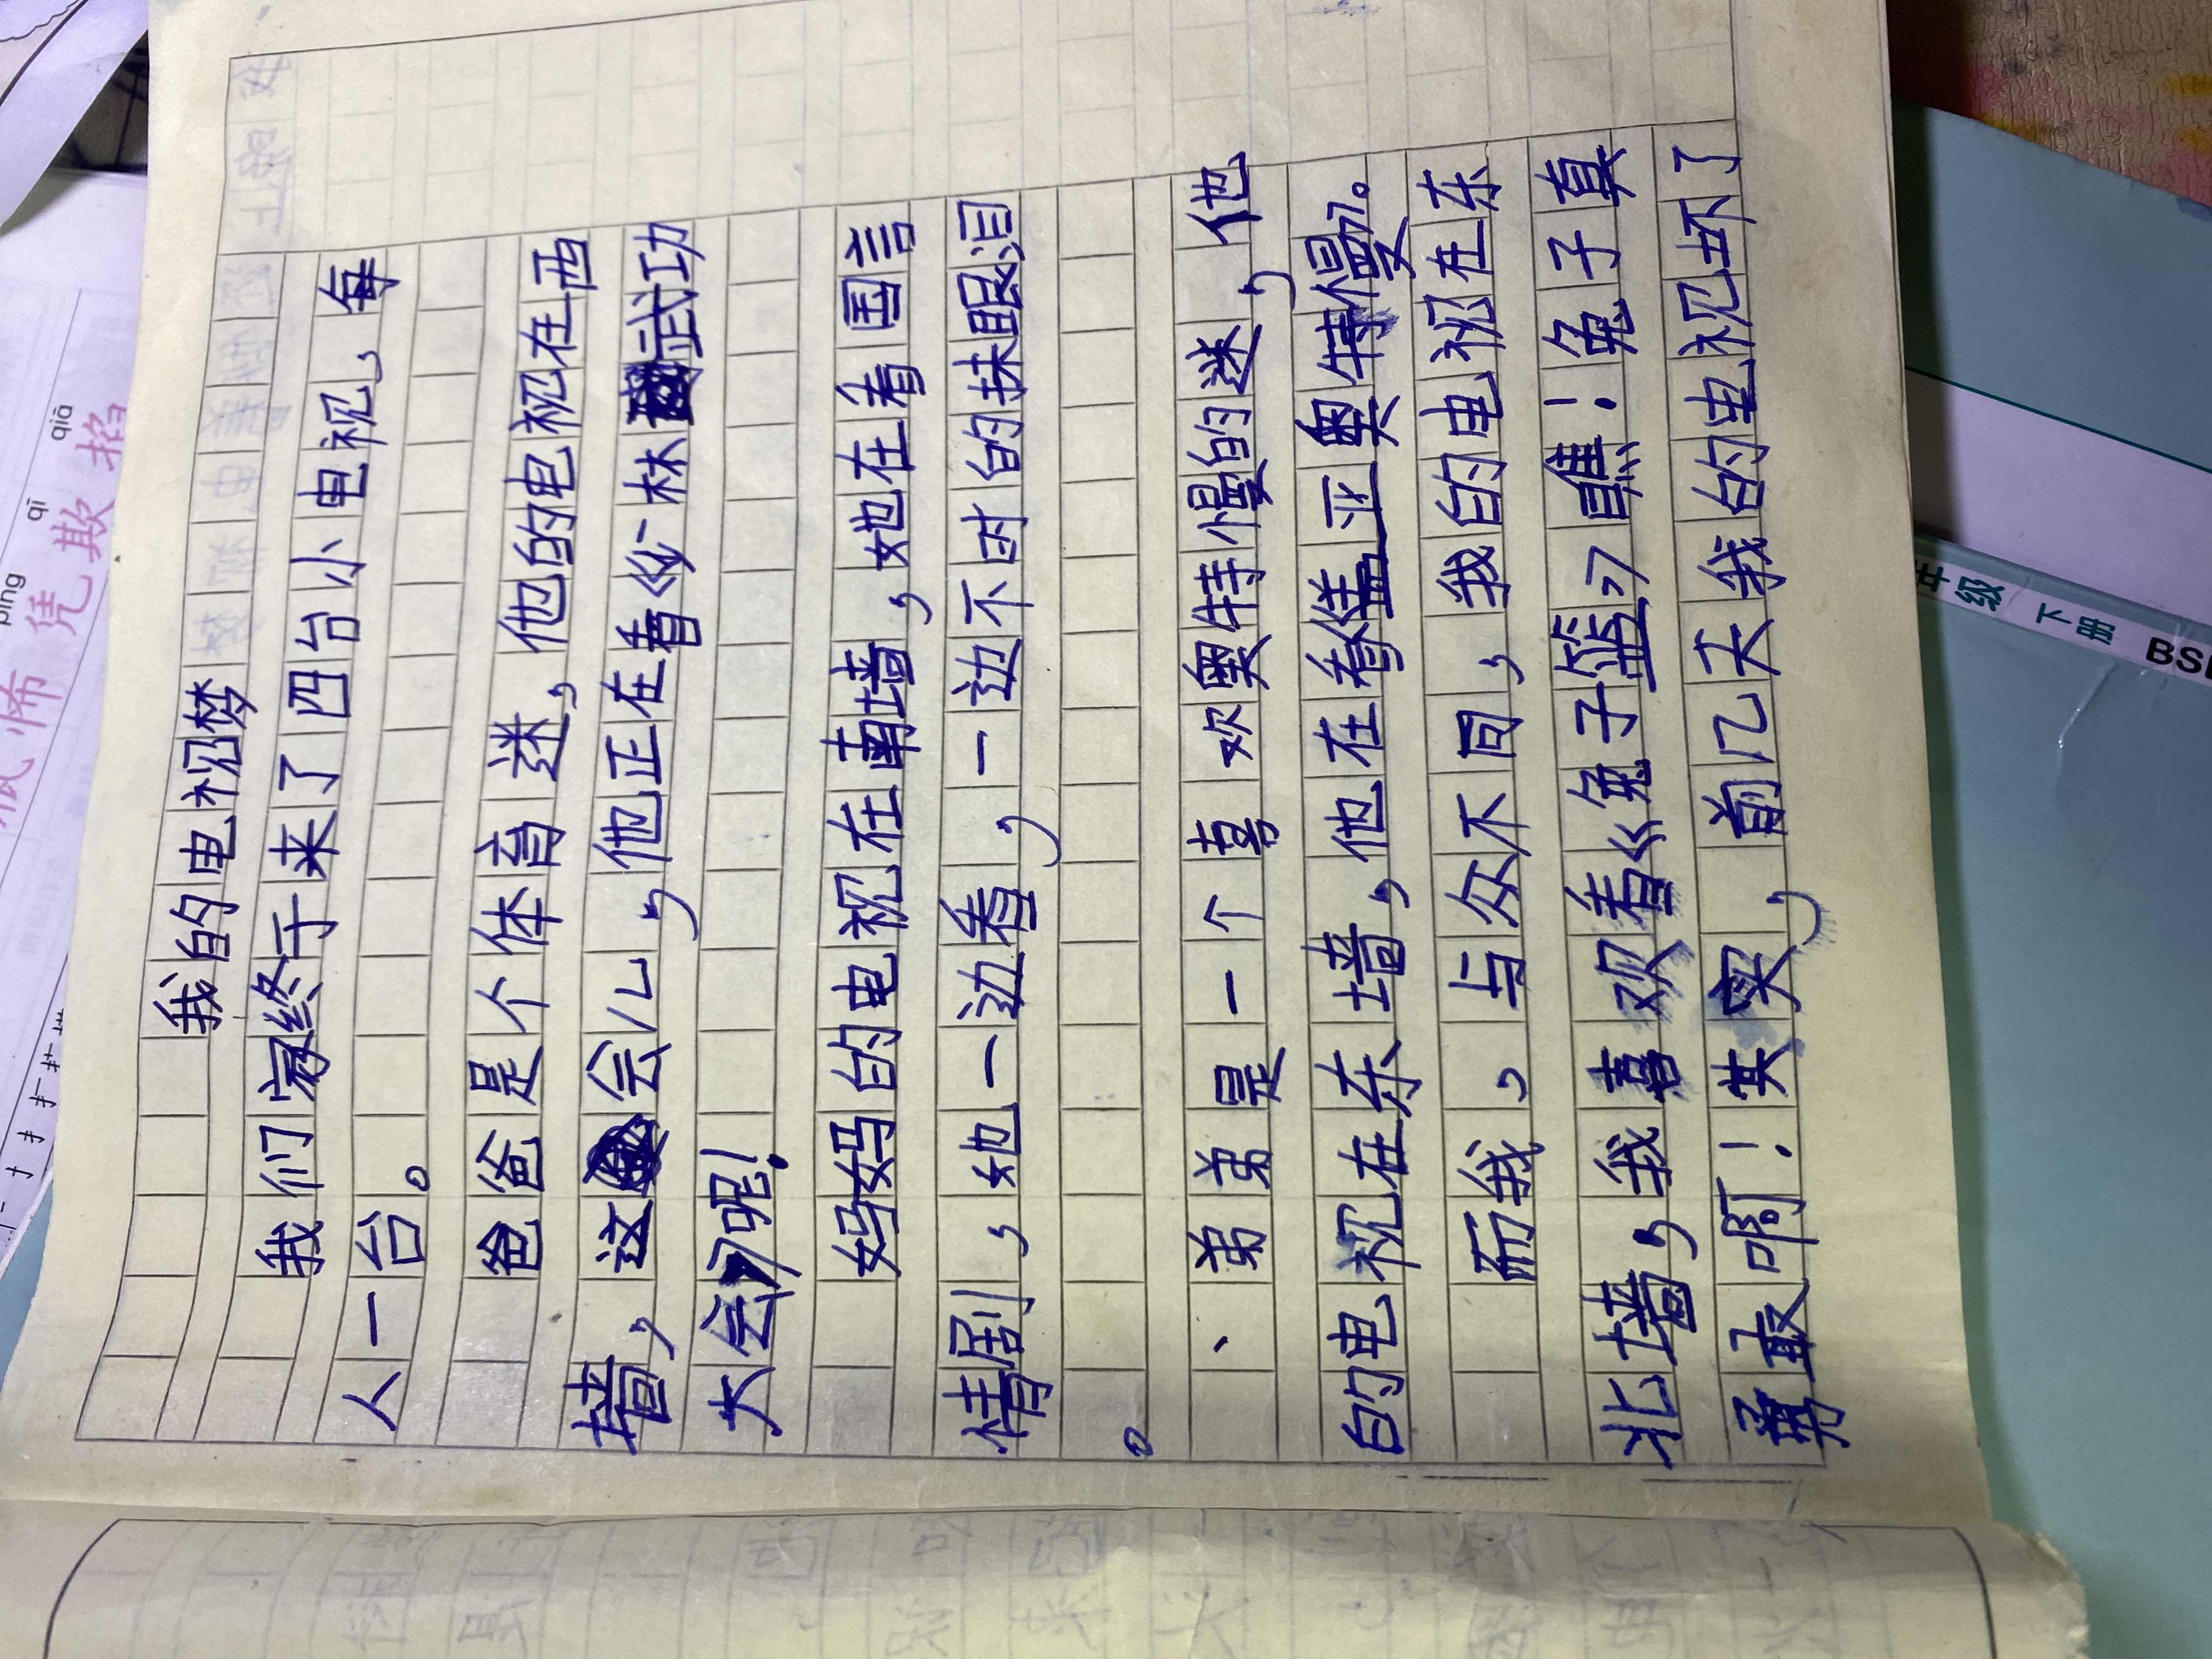 我的电视梦
我们家终于来了四台小电视，每
人一台。
爸爸是个体育迷，他的电视在西
墙，这会儿，他正在看《少林武功
大会》呢！
妈妈的电视在南墙，她在看国言
情剧，她一边看，一边不时的抹眼泪
。
、弟弟是一个喜欢奥特慢的迷，他
的电视在东墙，他在看《盖亚奥特慢》。
而我，与众不同，我的电视在东
北墙，我喜欢看《兔子篮》瞧！兔子真
勇敢啊！其实，前几天我的电视坏了
píng qī qiā
瓶 怖 凭 欺 掐
级 下册 BS